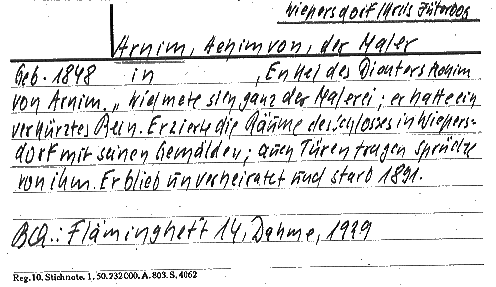 Wiepersdorf/Kreis Jüterbog
Arnim, Achim von, der Maler
Geb. 1848 in , Enkel des Dichters Achim
von Arnim. „Widmete sich ganz der Malerei; er hatte ein
verkürztes Bein. Er zierte die Räume des Schlosses in Wiepers-
dorf mit seinen Gemälden; auch Türen tragen Sprüche
von ihm. Er blieb unverheiratet und starb 1891.
Bei.: Fläminghett 14, Dahme, 1929
Reg. 10. Stichnote. 1. 50. 232000. A. 803. S. 4062